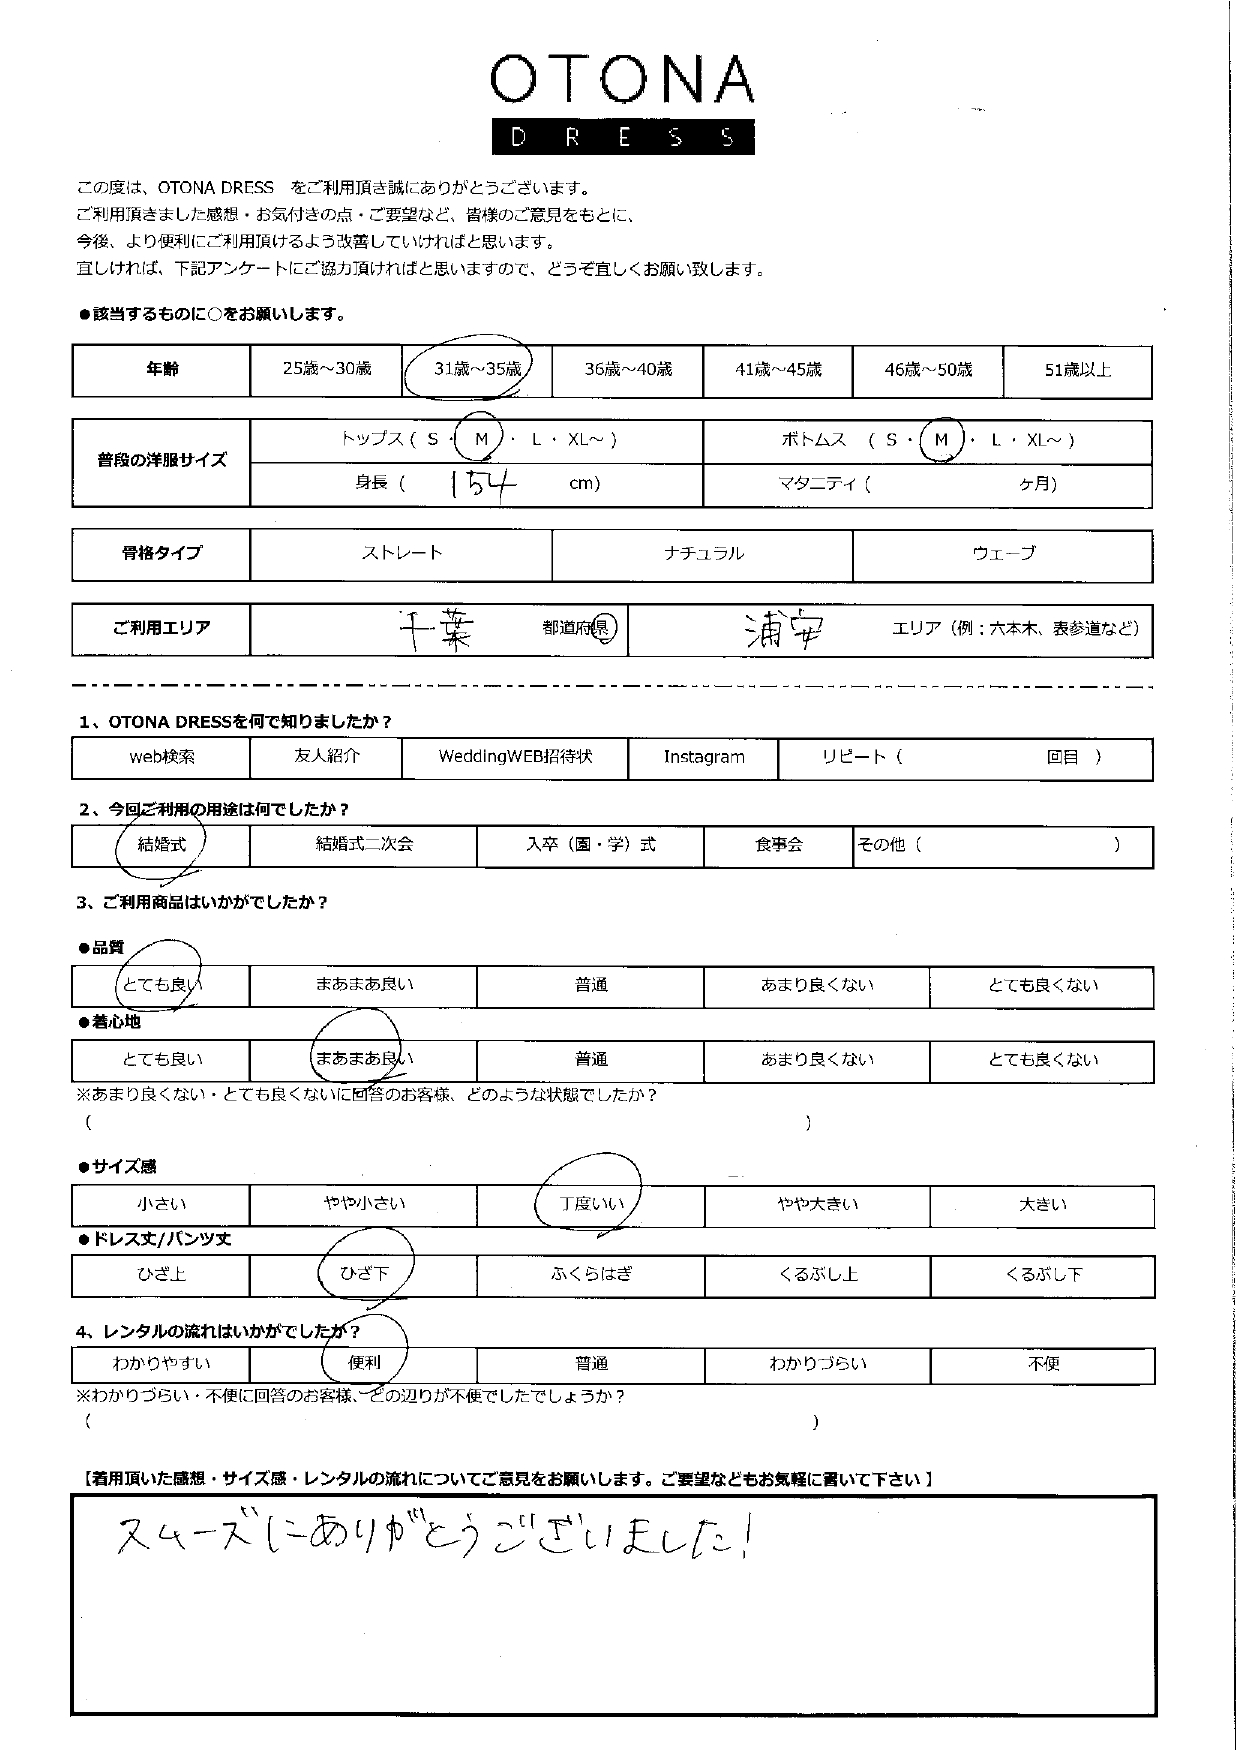 OTONA
DRESS
この度は、OTONA DRESS をご利用頂き誠にありがとうございます。
ご利用頂きました感想・お気付きの点・ご要望など、皆様のご意見をもとに、
今後、より便利にご利用頂けるよう改善していければと思います。
宜しければ、下記アンケートにご協力頂ければと思いますので、どうぞ宜しくお願い致します。
●該当するものに○をお願いします。
年齢 25歳～30歳 31歳～35歳 36歳～40歳 41歳～45歳 46歳～50歳 51歳以上
普段の洋服サイズ トップス ( S ・ M ・ L ・ XL～ ) ボトムス ( S ・ M ・ L ・ XL～ )
身長 ( 154 cm) マタニティ ( ケ月)
骨格タイプ ストレート ナチュラル ウェーブ
ご利用エリア 千葉 都道府県 浦安 エリア（例：六本木、表参道など）
1、OTONA DRESSを何で知りましたか？
web検索 友人紹介 WeddingWEB招待状 Instagram リピート ( 回目 )
2、今回ご利用の用途は何でしたか？
結婚式 結婚式二次会 入卒（園・学）式 食事会 その他 ( )
3、ご利用商品はいかがでしたか？
●品質
とても良い まあまあ良い 普通 あまり良くない とても良くない
●着心地
とても良い まあまあ良い 普通 あまり良くない とても良くない
※あまり良くない・とても良くないに回答のお客様、どのような状態でしたか？
( )
●サイズ感
小さい やや小さい 丁度いい やや大きい 大きい
●ドレス丈/パンツ丈
ひざ上 ひざ下 ふくらはぎ くるぶし上 くるぶし下
4、レンタルの流れはいかがでしたか？
わかりやすい 便利 普通 わかりづらい 不便
※わかりづらい・不便に回答のお客様、どの辺りが不便でしたでしょうか？
( )
【着用頂いた感想・サイズ感・レンタルの流れについてご意見をお願いします。ご要望などもお気軽に書いて下さい】
スムーズにありがとうございました！